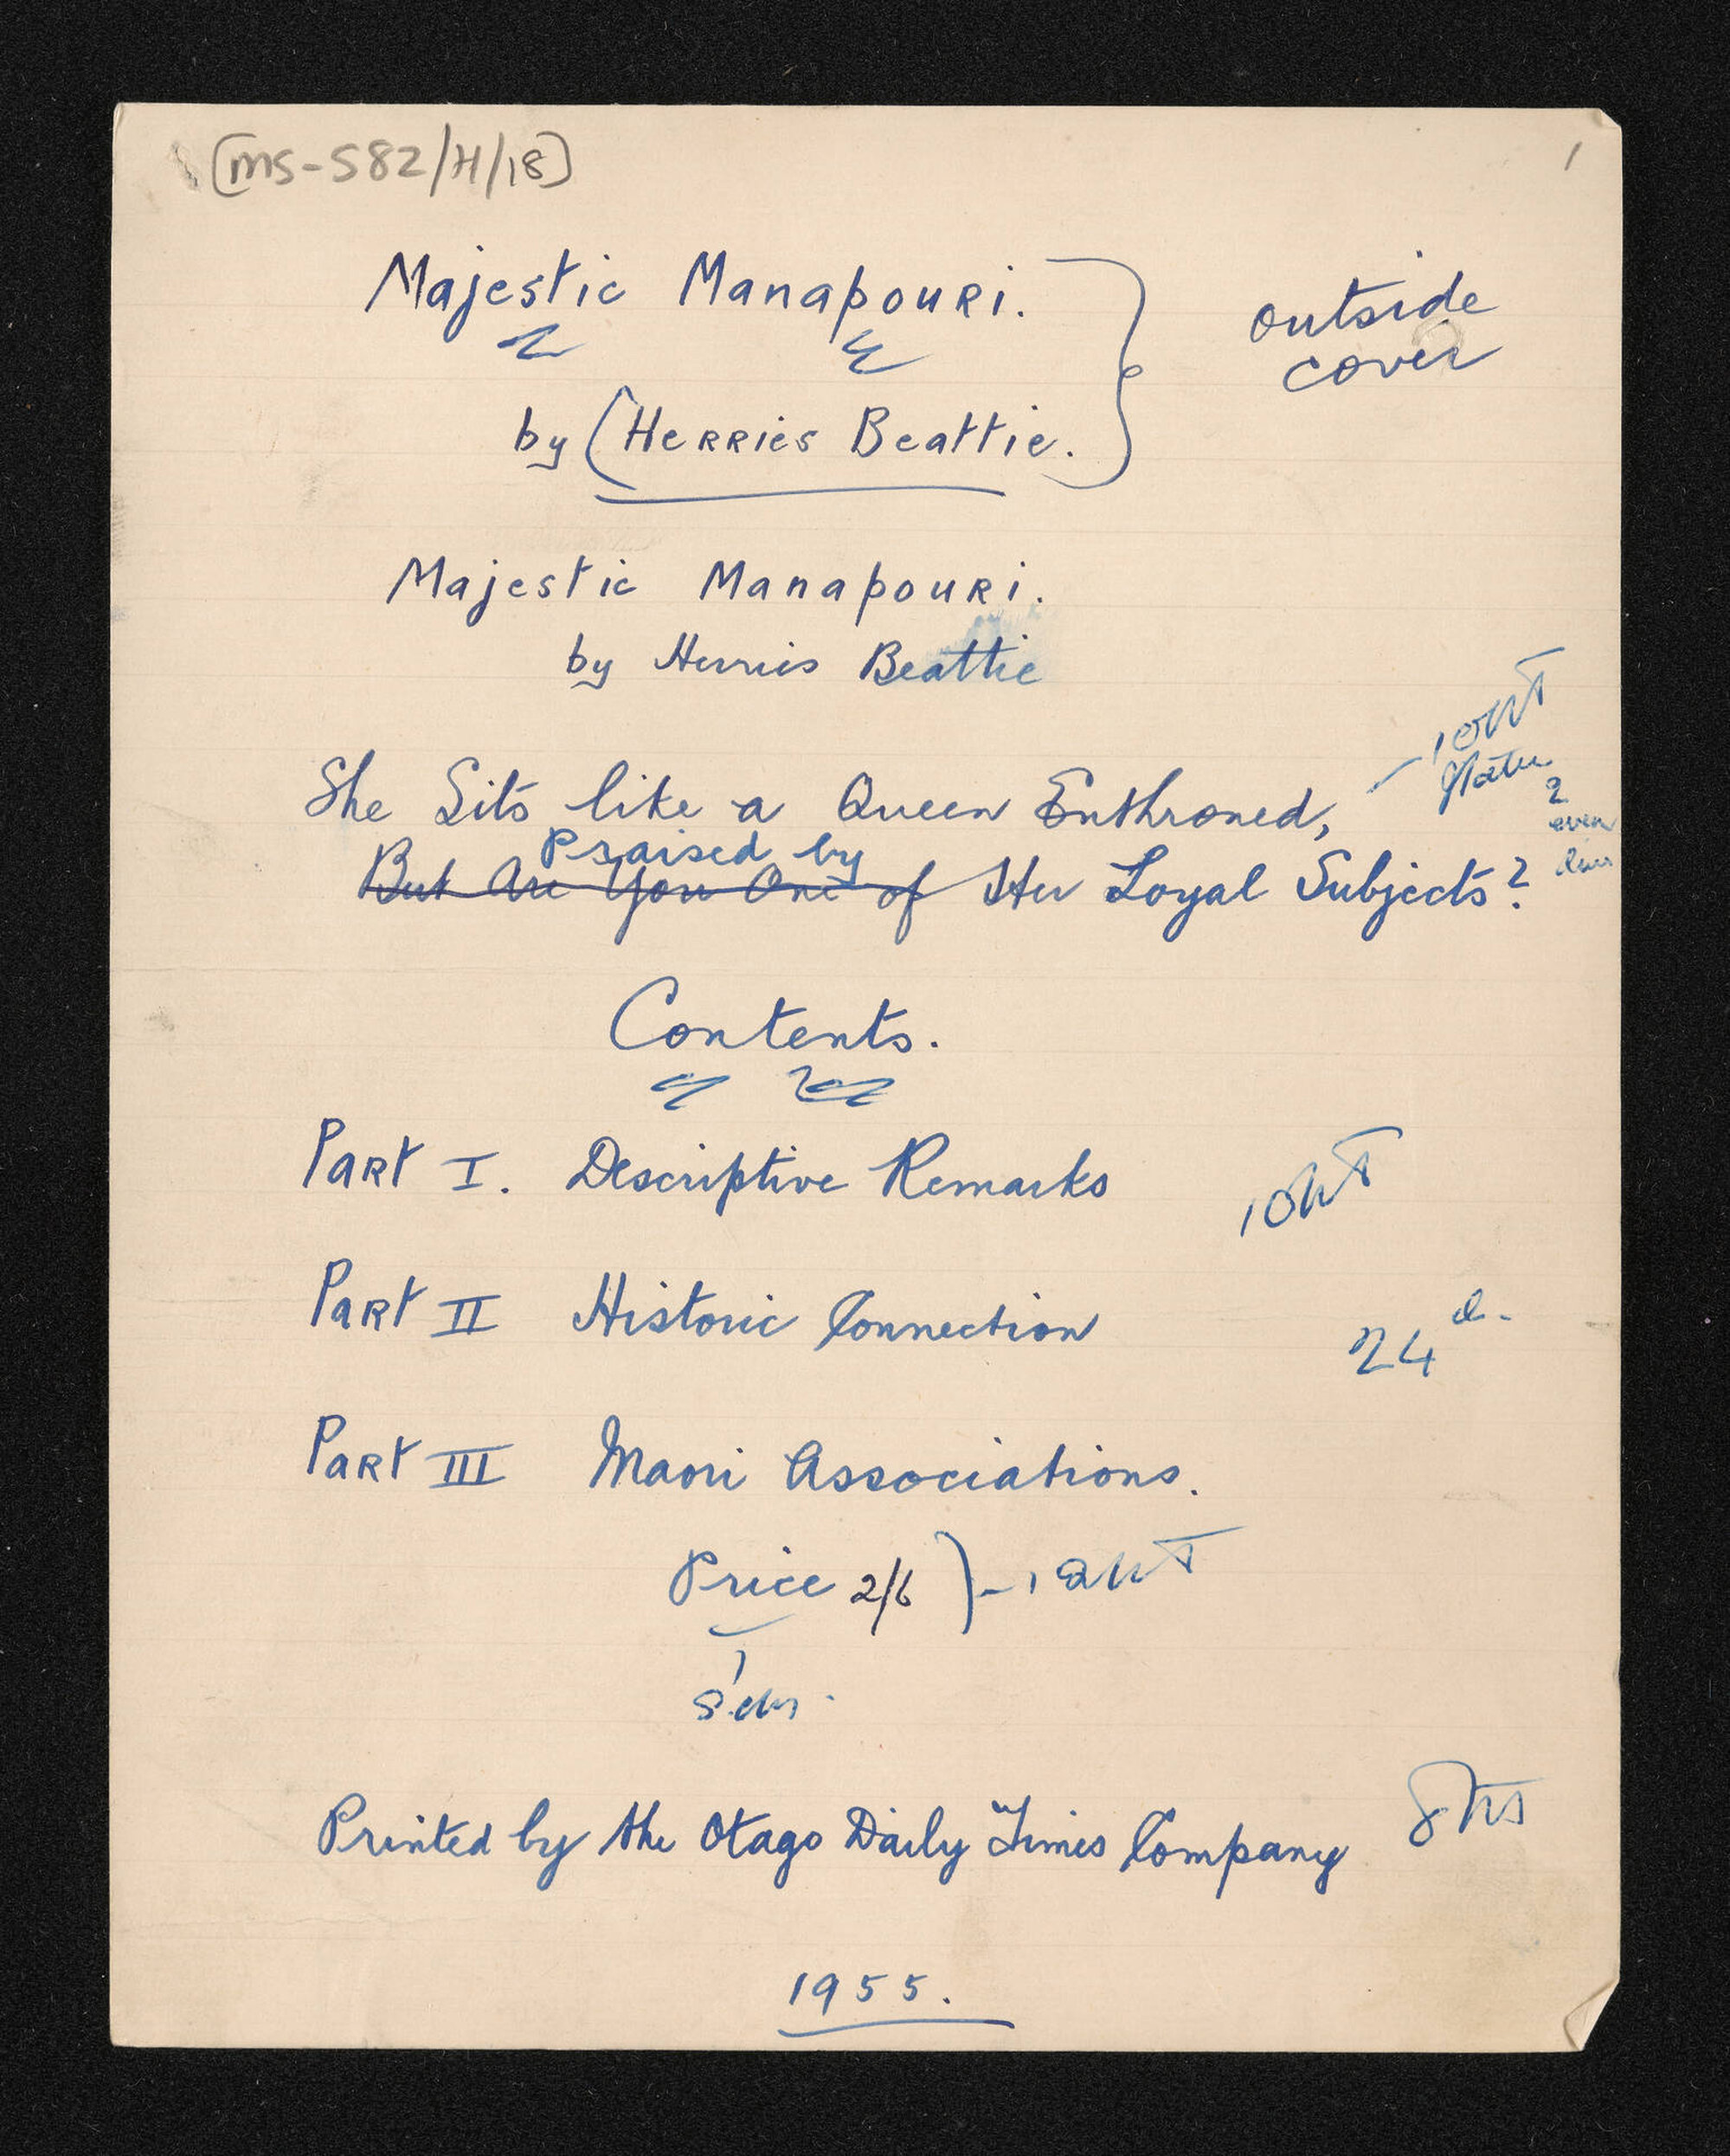 [MS-582/H/18]
1
Majestic Manapouri.
outside
cover
by (Herries Beattie.
Majestic Manapouri.
by Herries Beattie
She Sits like a Queen Enthroned,
Praised by
But Are You One of Her Loyal Subjects?
2
even
lines
Contents.
Part I. Descriptive Remarks
Part II Historic Connection
24
Part III Maori Associations.
Price 2/6
Printed by the Otago Daily Times Company
1955.